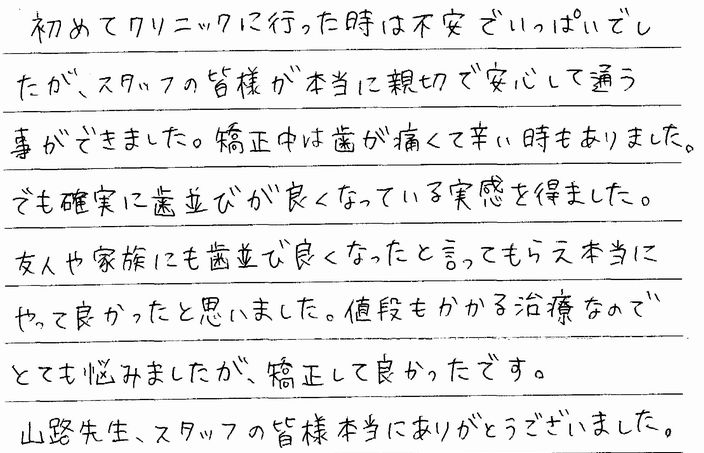 初めてクリニックに行った時は不安でいっぱいでし
たが、スタッフの皆様が本当に親切で安心して通う
事ができました。矯正中は歯が痛くて辛い時もありました。
でも確実に歯並びが良くなっている実感を得ました。
友人や家族にも歯並び良くなったと言ってもらえ本当に
やって良かったと思いました。値段もかかる治療なので
とても悩みましたが、矯正して良かったです。
山路先生、スタッフの皆様本当にありがとうございました。